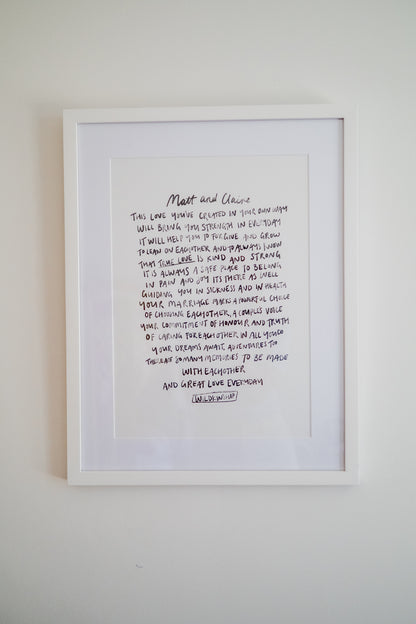 Matt and Claire
THIS LOVE YOU'VE CREATED IN YOUR OWN WAY
WILL BRING YOU STRENGTH IN EVERYDAY
IT WILL HELP YOU TO FORGIVE AND GROW
TO LEAN ON EACHOTHER AND TO ALWAYS KNOW
THAT TRUE LOVE IS KIND AND STRONG
IT IS ALWAYS A SAFE PLACE TO BELONG
IN PAIN AND JOY ITS THERE AS WELL
GUIDING YOU IN SICKNESS AND IN HEALTH
YOUR MARRIAGE MARKS A POWERFUL CHOICE
OF CHOOSING EACHOTHER, A COUPLES VOICE
YOUR COMMITMENT OF HONOUR AND TRUTH
OF CARING FOR EACHOTHER IN ALL YOU DO
YOUR DREAMS AWAIT, ADVENTURES TOO
THERE ARE SO MANY MEMORIES TO BE MADE
WITH EACHOTHER
AND GREAT LOVE EVERYDAY